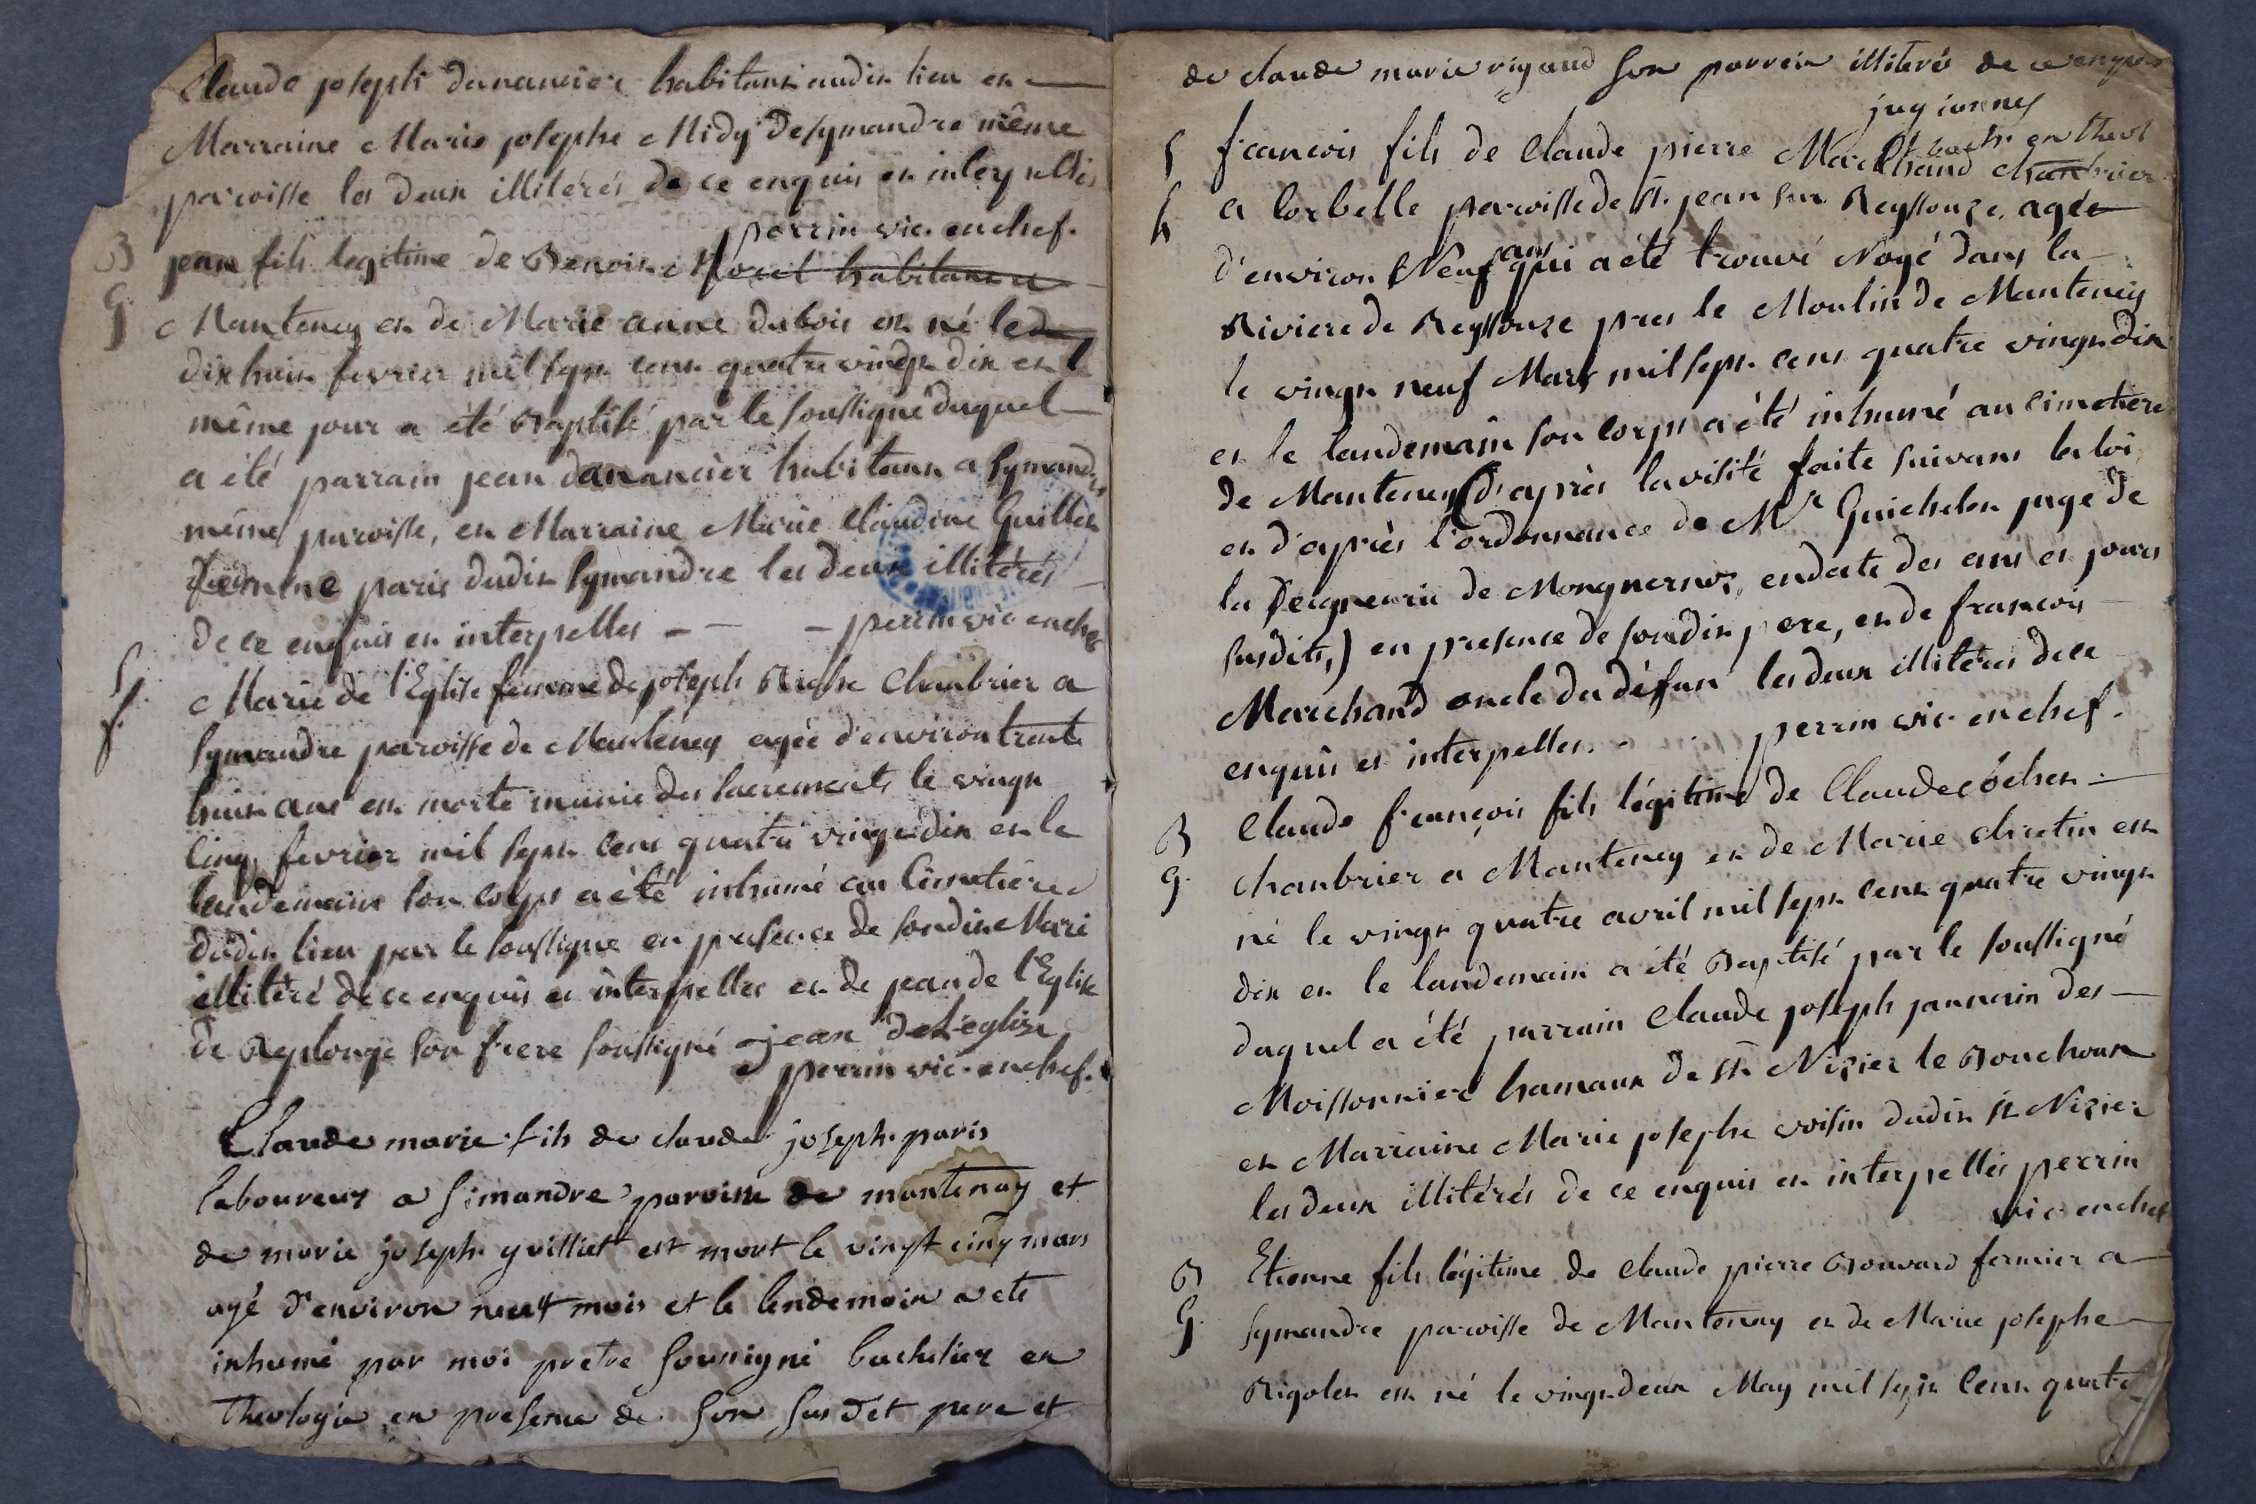 Claude joseph danancier habitant audit lieu et
Marraine Marie josephe Midy de symandre même
paroisse les deux illitérés de ce enquis et interpellés
perrin vic. en chef.
B jean fils legitime de Benoit Morel habitant a
G. Manteney et de Marie anne dubois est né le
dix huit fevrier mil sept cent quatre vingt dix et le
même jour a été Baptisé par le soussigné duquel
a été parrain jean danancier habitant a symandre
même paroisse, et Marraine Marie Claudine Guillet
femme paris dudit symandre les deux illitérés
de ce enquis et interpelles - - - perrin vic en chef
S. Marie de l'Eglise femme de joseph Riche Chambrier a
f. symandre paroisse de Manteney agée d'environ trente
huit ans est morte munie des sacrements le vingt
cinq fevrier mil sept cent quatre vingt dix et le
landemain son corps a été inhumé au Cimetiere
dudit lieu par le soussigné en presence de sondit Mari
illitéré de ce enquis et interpellés et de jean de l'Eglise
de Replonge son frere soussigné jean deléglise
perrin vic. en chef.
Claude marie fils de claude joseph paris
laboureur a simandre paroisse de mantenay et
de marie joseph guilliet est mort le vingt cinq mars
agé d'environ neuf mois et le lendemain a ete
inhumé par moi pretre soussigné bachelier en
theologie en presence de son susdit pere et
de claude marie rigaud son parrein illiteré de ce enquis
bach. en theol
S francois fils de Claude pierre Marchand Chambrier
h a Corbelle paroisse de st. jean sur Reyssouze, agée
d'environ Neuf ans qui a été trouvé Noyé dans la
Riviere de Reyssouze pres le Moulin de Manteney
le vingt neuf Mars mil sept cent quatre vingt dix
et le landemain son corps a été inhumé au cimetiere
de Manteney (d'après la visite faite suivant la loi
et d'après l'ordonnance de Mr Guichelet juge de
la seigneurie de Mongnernoz, en date des ans et jours
susdits,) en presence de sondit pere, et de francois
Marchand oncle du défunt les deux illitérés de ce
enquis et interpelles. - . perrin vic. en chef.
B Claude françois fils légitime de Claude
G. Chambrier a Manteney et de Marie chretin est
né le vingt quatre avril mil sept cent quatre vingt
dix et le landemain a été Baptisé par le soussigné
duquel a été parrain Claude joseph jannain des
Moissonnier hamaux de st. Nizier le Bouchoux
et Marraine Marie josephe voisin dudit st Nizier
les deux illitérés de ce enquis et interpellés perrin
vic en chef
B Etienne fils légitime de Claude pierre Bouvard fermier a
G. symandre paroisse de Mantenay et de Marie josephe
Rigolet est né le vingt deux May mil sept cent quatre